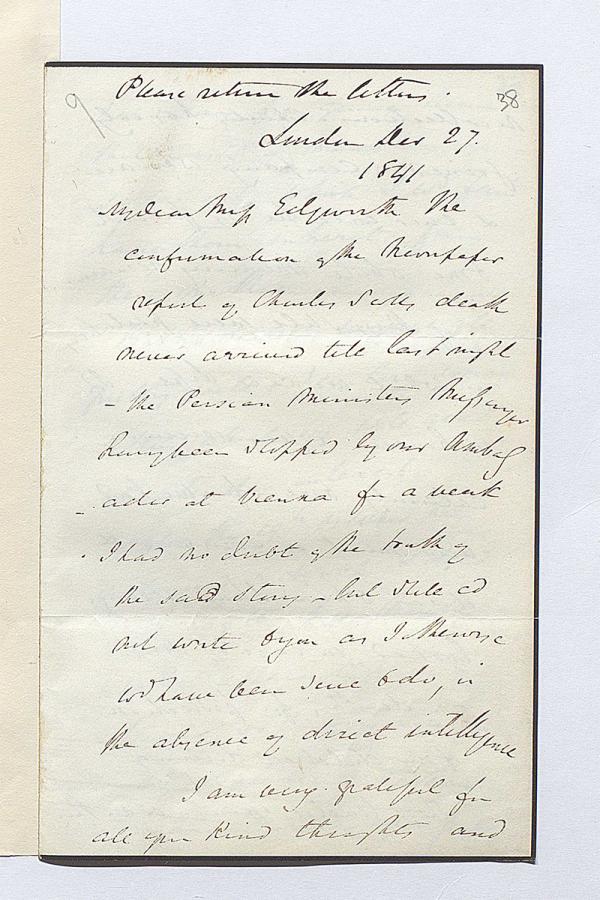 9
38
Please return the letters.
London Dec 27.
1841
My dear Miss Edgworth The
confirmation of the Newspaper
report of Charles Scotts death
never arrived till last night
- the Persian Ministers Messenger
having been stopped by our Ambass
-ador at Vienna for a week
I had no doubt of the truth of
the sad story - but still cd
not write to you as I otherwise
wd have been sure to do, in
the absence of direct intelligence
I am very grateful for
all your kind thoughts and